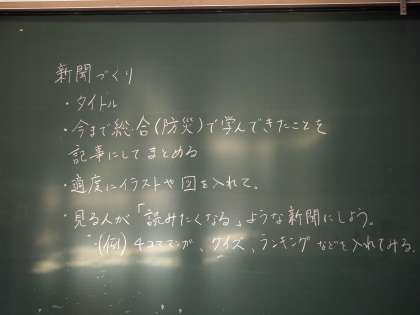 新聞づくり
・タイトル
・今まで総合(防災)で学んできたことを
記事にしてまとめる
・適度にイラストや図を入れて。
・見る人が「読みたくなる」ような新聞にしよう。
・(例)4コママンガ、クイズ、ランキングなどを入れてみる。